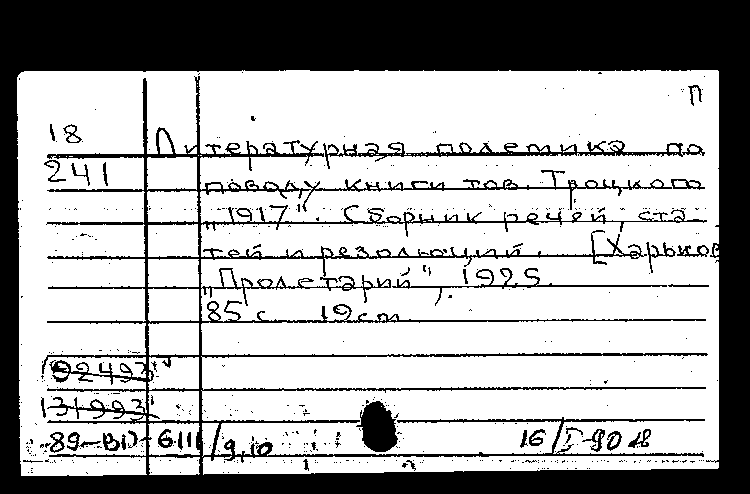 П
18 Литературная полемика по
241 поводу книги тов. Троцкого
„1917". Сборник речей, ста-
тей и резолюций. [Харьков
„Пролетарий", 1925.
85 с 19cm
192493
131993
89-BD-6111/9,10 16/I-90